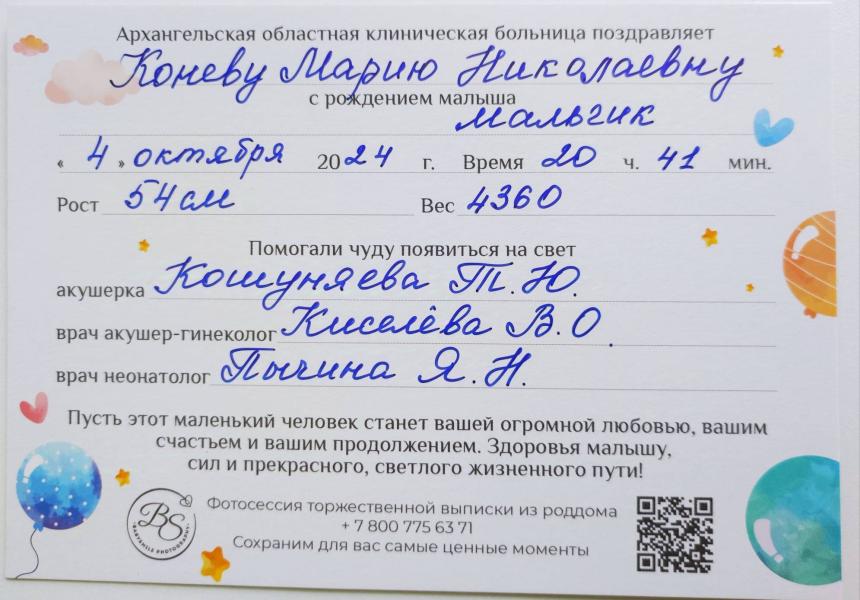 Архангельская областная клиническая больница поздравляет
Коневу Марию Николаевну
с рождением малыша
мальчик
« 4 » октября 2024 г. Время 20 ч. 41 мин.
Рост 54 см Вес 4360
Помогали чуду появиться на свет
акушерка Кошуняева Т. Ю.
врач акушер-гинеколог Киселёва В. О.
врач неонатолог Пычина Я. Н.
Пусть этот маленький человек станет вашей огромной любовью, вашим
счастьем и вашим продолжением. Здоровья малышу,
сил и прекрасного, светлого жизненного пути!
BS
BABYSMILE PHOTOGRAPHY
Фотосессия торжественной выписки из роддома
+ 7 800 775 63 71
Сохраним для вас самые ценные моменты